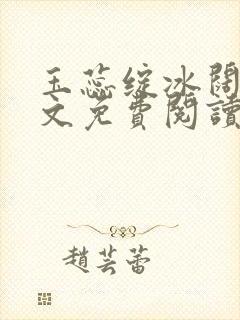 玉蕊綻冰闊
文免費閱讀
趙芸蕾